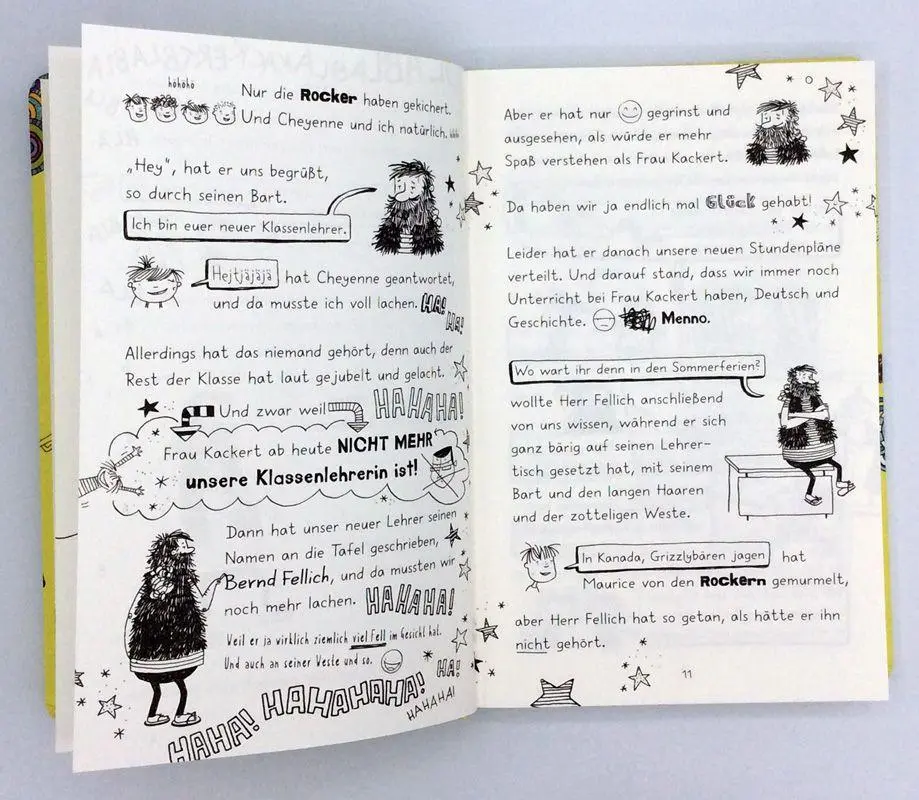 höhöhö
Nur die Rocker haben gekichert.
Und Cheyenne und ich natürlich.
„Hey“, hat er uns begrüßt,
so durch seinen Bart.
Ich bin euer neuer Klassenlehrer.
Hejtjäjäjä hat Cheyenne geantwortet,
und da musste ich voll lachen. HA!
HA!
Allerdings hat das niemand gehört, denn auch der
Rest der Klasse hat laut gejubelt und gelacht.
Und zwar weil HAHAHA!
Frau Kackert ab heute NICHT MEHR
unsere Klassenlehrerin ist!
Dann hat unser neuer Lehrer seinen
Namen an die Tafel geschrieben,
Bernd Fellich, und da mussten wir
noch mehr lachen. HAHAHA!
Weil er ja wirklich ziemlich viel Fell im Gesicht hat.
Und auch an seiner Weste und so.
HA!
HAHA! HAHAHAHA!
HAHAHA!
Aber er hat nur gegrinst und
ausgesehen, als würde er mehr
Spaß verstehen als Frau Kackert.
Da haben wir ja endlich mal Glück gehabt!
Leider hat er danach unsere neuen Stundenpläne
verteilt. Und darauf stand, dass wir immer noch
Unterricht bei Frau Kackert haben, Deutsch und
Geschichte. Menno.
Wo wart ihr denn in den Sommerferien?
wollte Herr Fellich anschließend
von uns wissen, während er sich
ganz bärig auf seinen Lehrer-
tisch gesetzt hat, mit seinem
Bart und den langen Haaren
und der zotteligen Weste.
In Kanada, Grizzlybären jagen hat
Maurice von den Rockern gemurmelt,
aber Herr Fellich hat so getan, als hätte er ihn
nicht gehört.
11